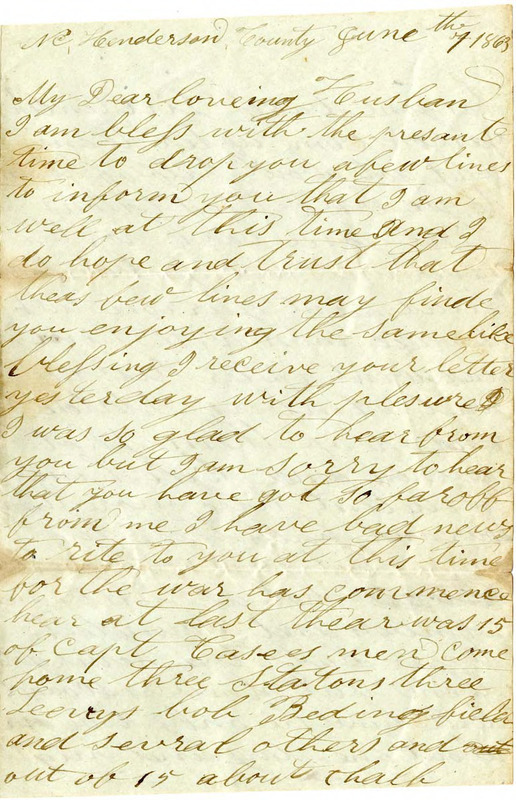 NC Henderson County June the 7 1863
My Dear loveing Husban
I am bless with the presant
time to drop you a few lines
to inform you that I am
well at this time and I
do hope and trust that
theas few lines may finde
you enjoying the same like
blessing I receive your letter
yesterday with plesure
I was so glad to hear from
you but I am sorry to hear
that you have got so far off
from me I have bad news
to rite to you at this time
for the war has commence
hear at last thear was 15
of Capt Casees men come
home three Statons three
bob Bedingfield
and several others and
out of 15 about thalf